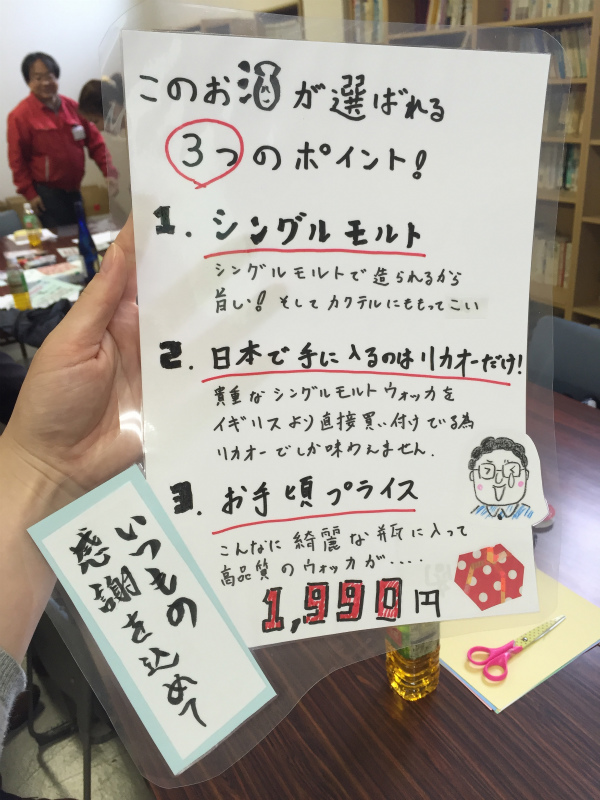 このお酒が選ばれる
3つのポイント!
1. シングルモルト
シングルモルトで造られるから
旨い! そしてカクテルにももってこい
2. 日本で手に入るのはリカオーだけ!
貴重なシングルモルトウォッカを
イギリスより直接買い付けでる為
リカオーでしか味わえません.
3. お手頃プライス
こんなに綺麗な瓶に入って
高品質のウォッカが....
1,990円
いつもの
感謝を込めて